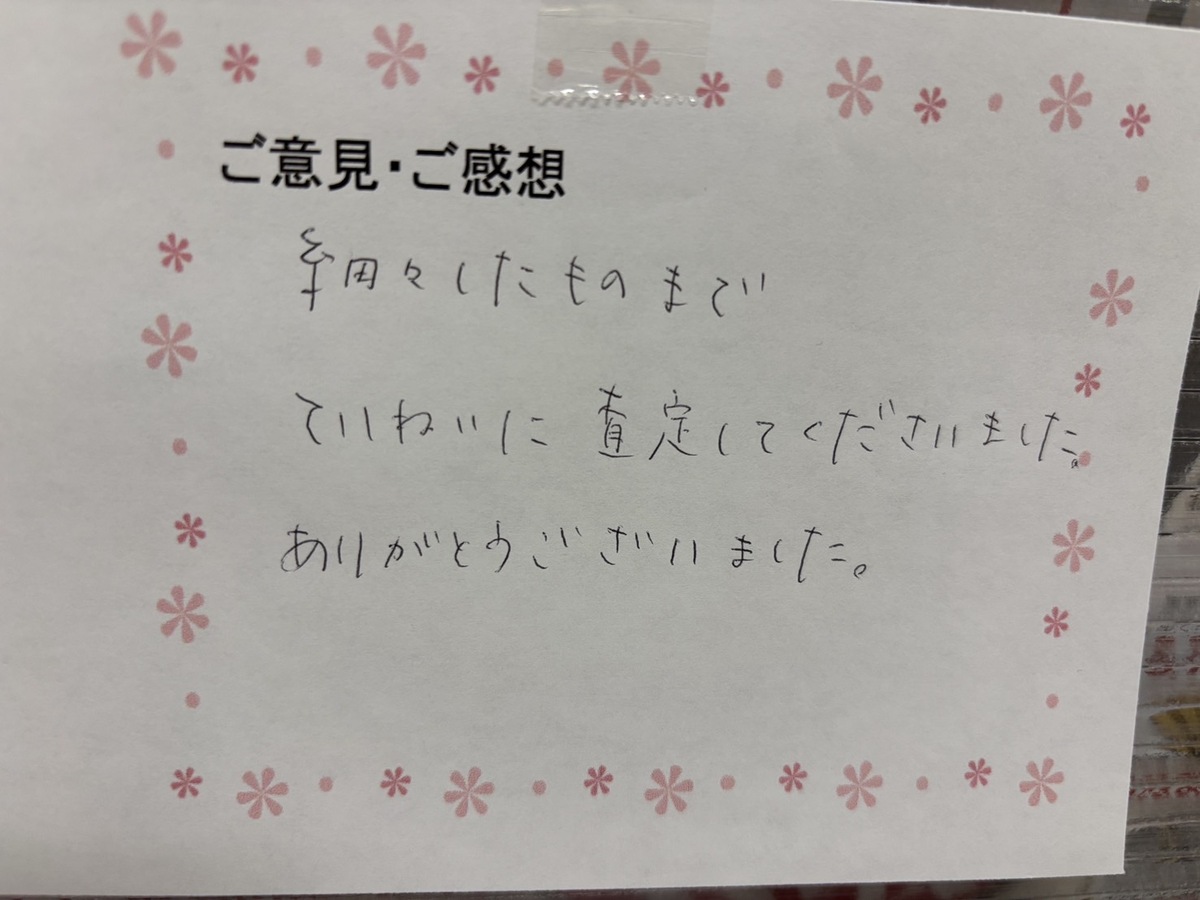 ご意見・ご感想
細々したものまで
ていねいに査定してくださいました。
ありがとうございました。